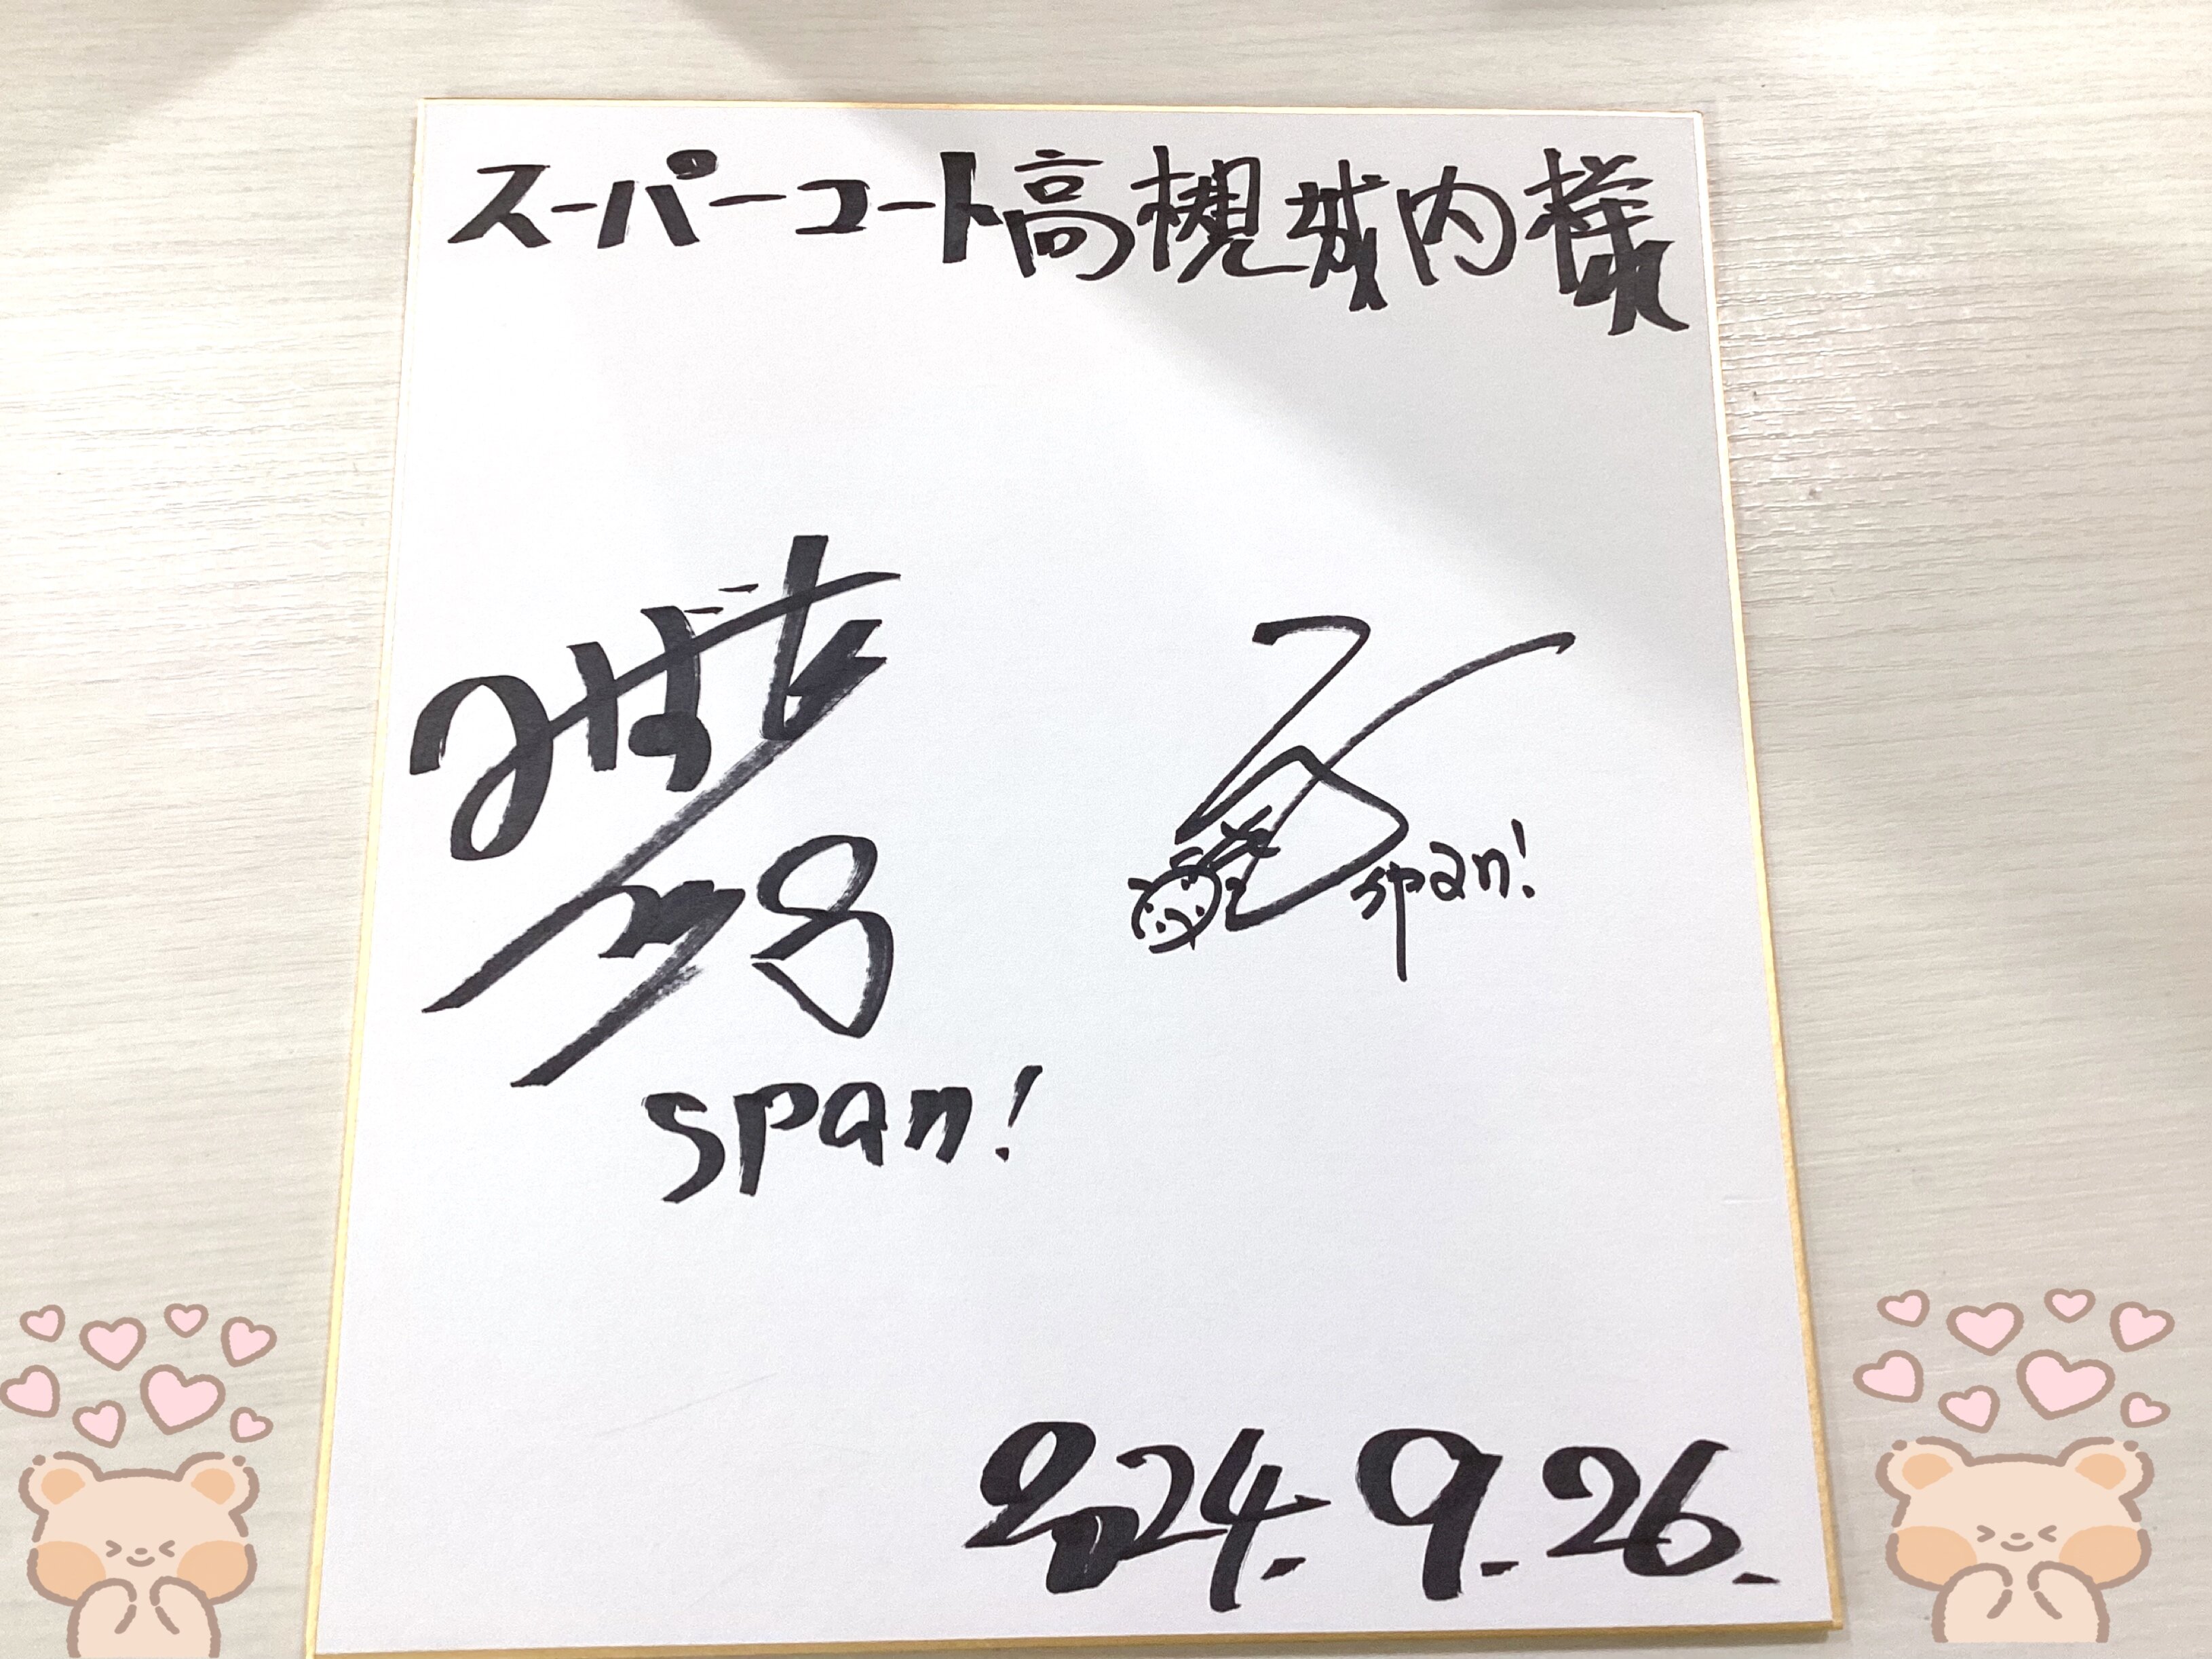 スーパーコート高槻城内様
span!
span!
2024.9.26.